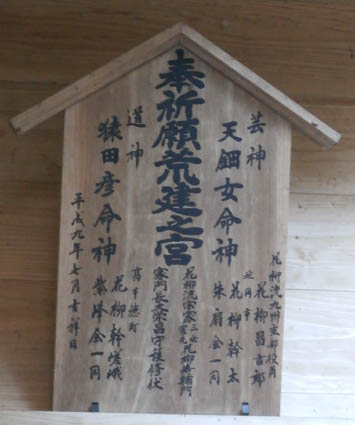 奉祈願荒建之宮
芸神
天鈿女命神
道神
猿田彦命神
花柳流九州支部役員
花柳昌吉郎
延岡市
花柳幹太
朱扇会一同
花柳流宗家三世宗元花柳壽輔門
家門長久栄昌守護修伏
高千穂町
花柳幹嵯峨
紫峰会一同
平成九年七月吉祥日